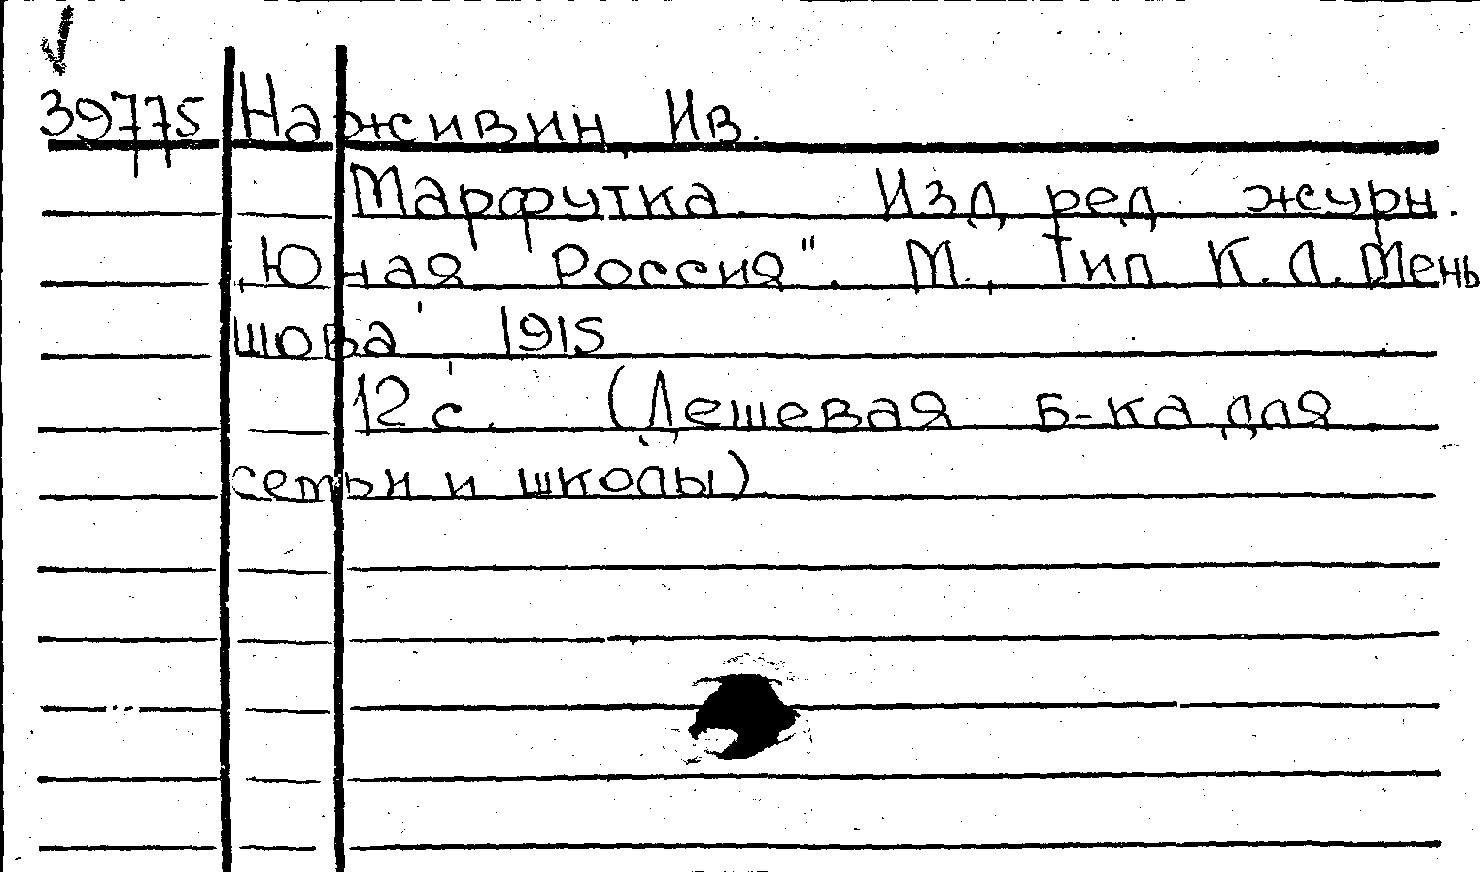 39775 Наживин, Ив.
Марфутка. Изд. ред. журн.
„Юная Россия". М., Тип. К. Л. Мень
шова, 1915
12 с. (Дешевая б-ка для
семьи и школы)